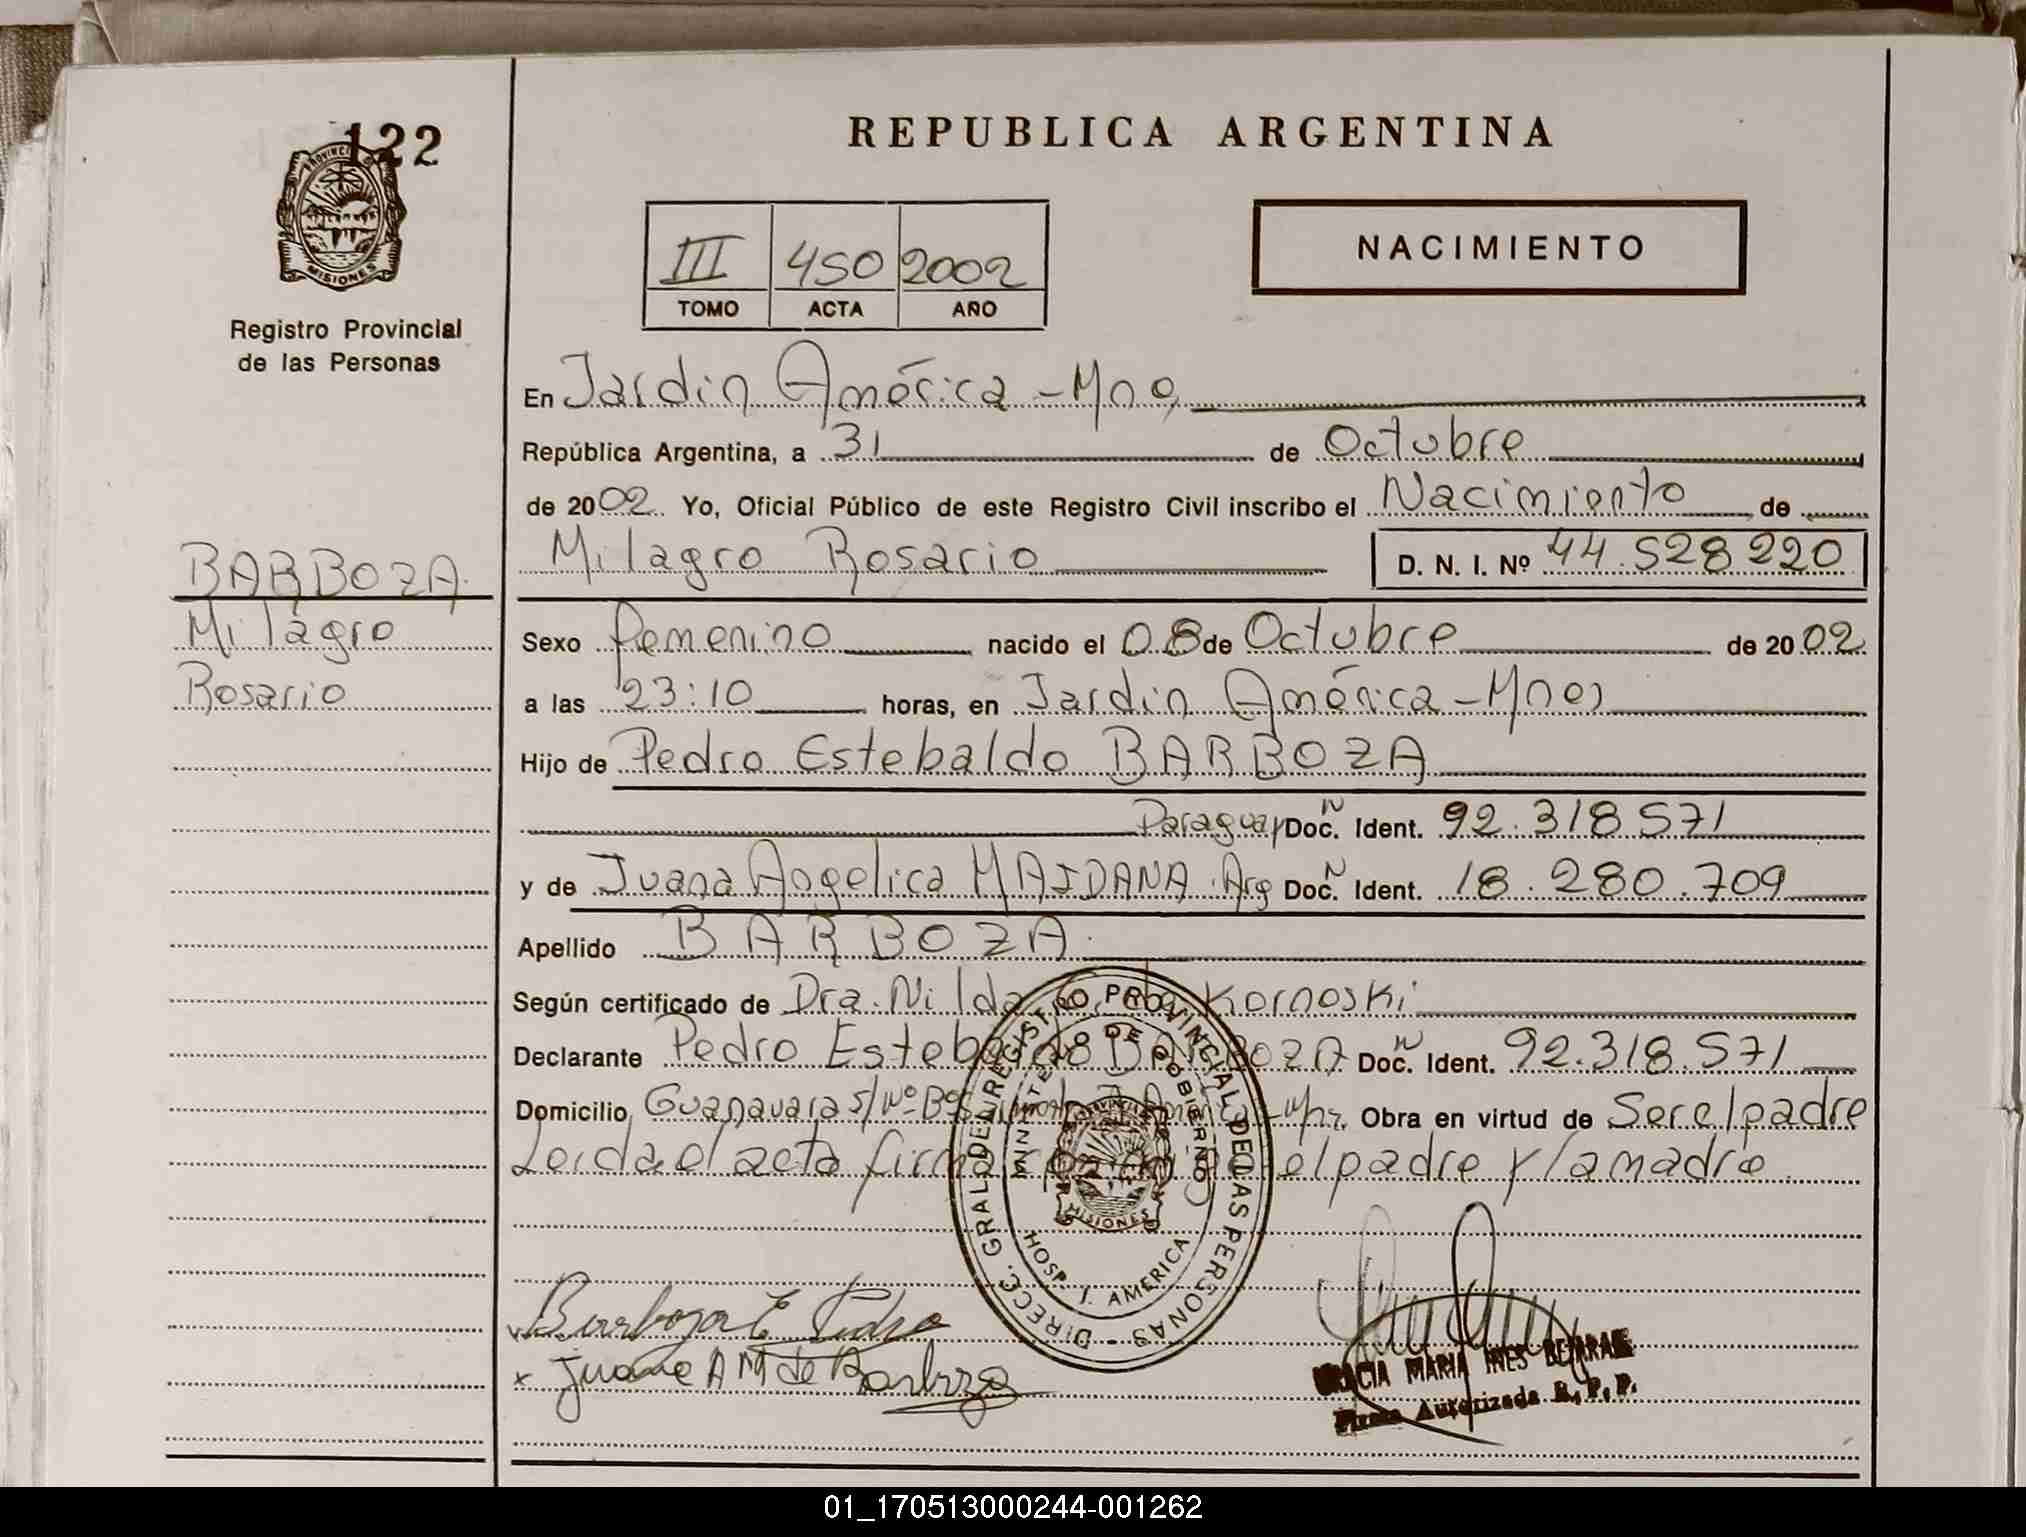 122
PROVINCIA DE
MISIONES
Registro Provincial
de las Personas
BARBOZA
Milagro
Rosario
REPUBLICA ARGENTINA
III 450 2002
TOMO ACTA AÑO
NACIMIENTO
En Jardin América - Mnes
República Argentina, a 31 de Octubre
de 2002 Yo, Oficial Público de este Registro Civil inscribo el Nacimiento de
Milagro Rosario D. N. I. Nº 44.528.220
Sexo femenino nacido el 08 de Octubre de 2002
a las 23:10 horas, en Jardin América - Mnes
Hijo de Pedro Estebaldo BARBOZA
Paraguay Doc. Ident. 92.318.571
y de Juana Angelica MAIDANA Arg Doc. Ident. 18.280.709
Apellido BARBOZA
Según certificado de Dra. Nilda Kornoski
Declarante Pedro Estebaldo BARBOZA Doc. Ident. 92.318.571
Domicilio Guanavara s/Nº Obra en virtud de Ser el padre
Leida el acta firma el padre y la madre
DIRECC. GRAL. DEL REGISTRO PROVINCIAL DE LAS PERSONAS
MINISTERIO DE GOBIERNO
HOSP. J. AMERICA
MISIONES
Barboza E Pedro
x Juana A M de Barboza
MARIA INES
Firma Autorizada R. P. P.
01_170513000244-001262